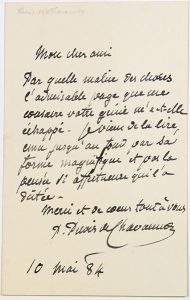 Mon cher ami
Par quelle malice des choses
l'admirable page que me
consacre votre génie m'a-t-elle
échappé. Je viens de la lire,
ému jusqu'au fond par sa
forme magnifique et par la
pensée si affectueuse qui l'a
dictée.
Merci et de coeur tout à vous
P. Puvis de Chavannes
10 mai 84